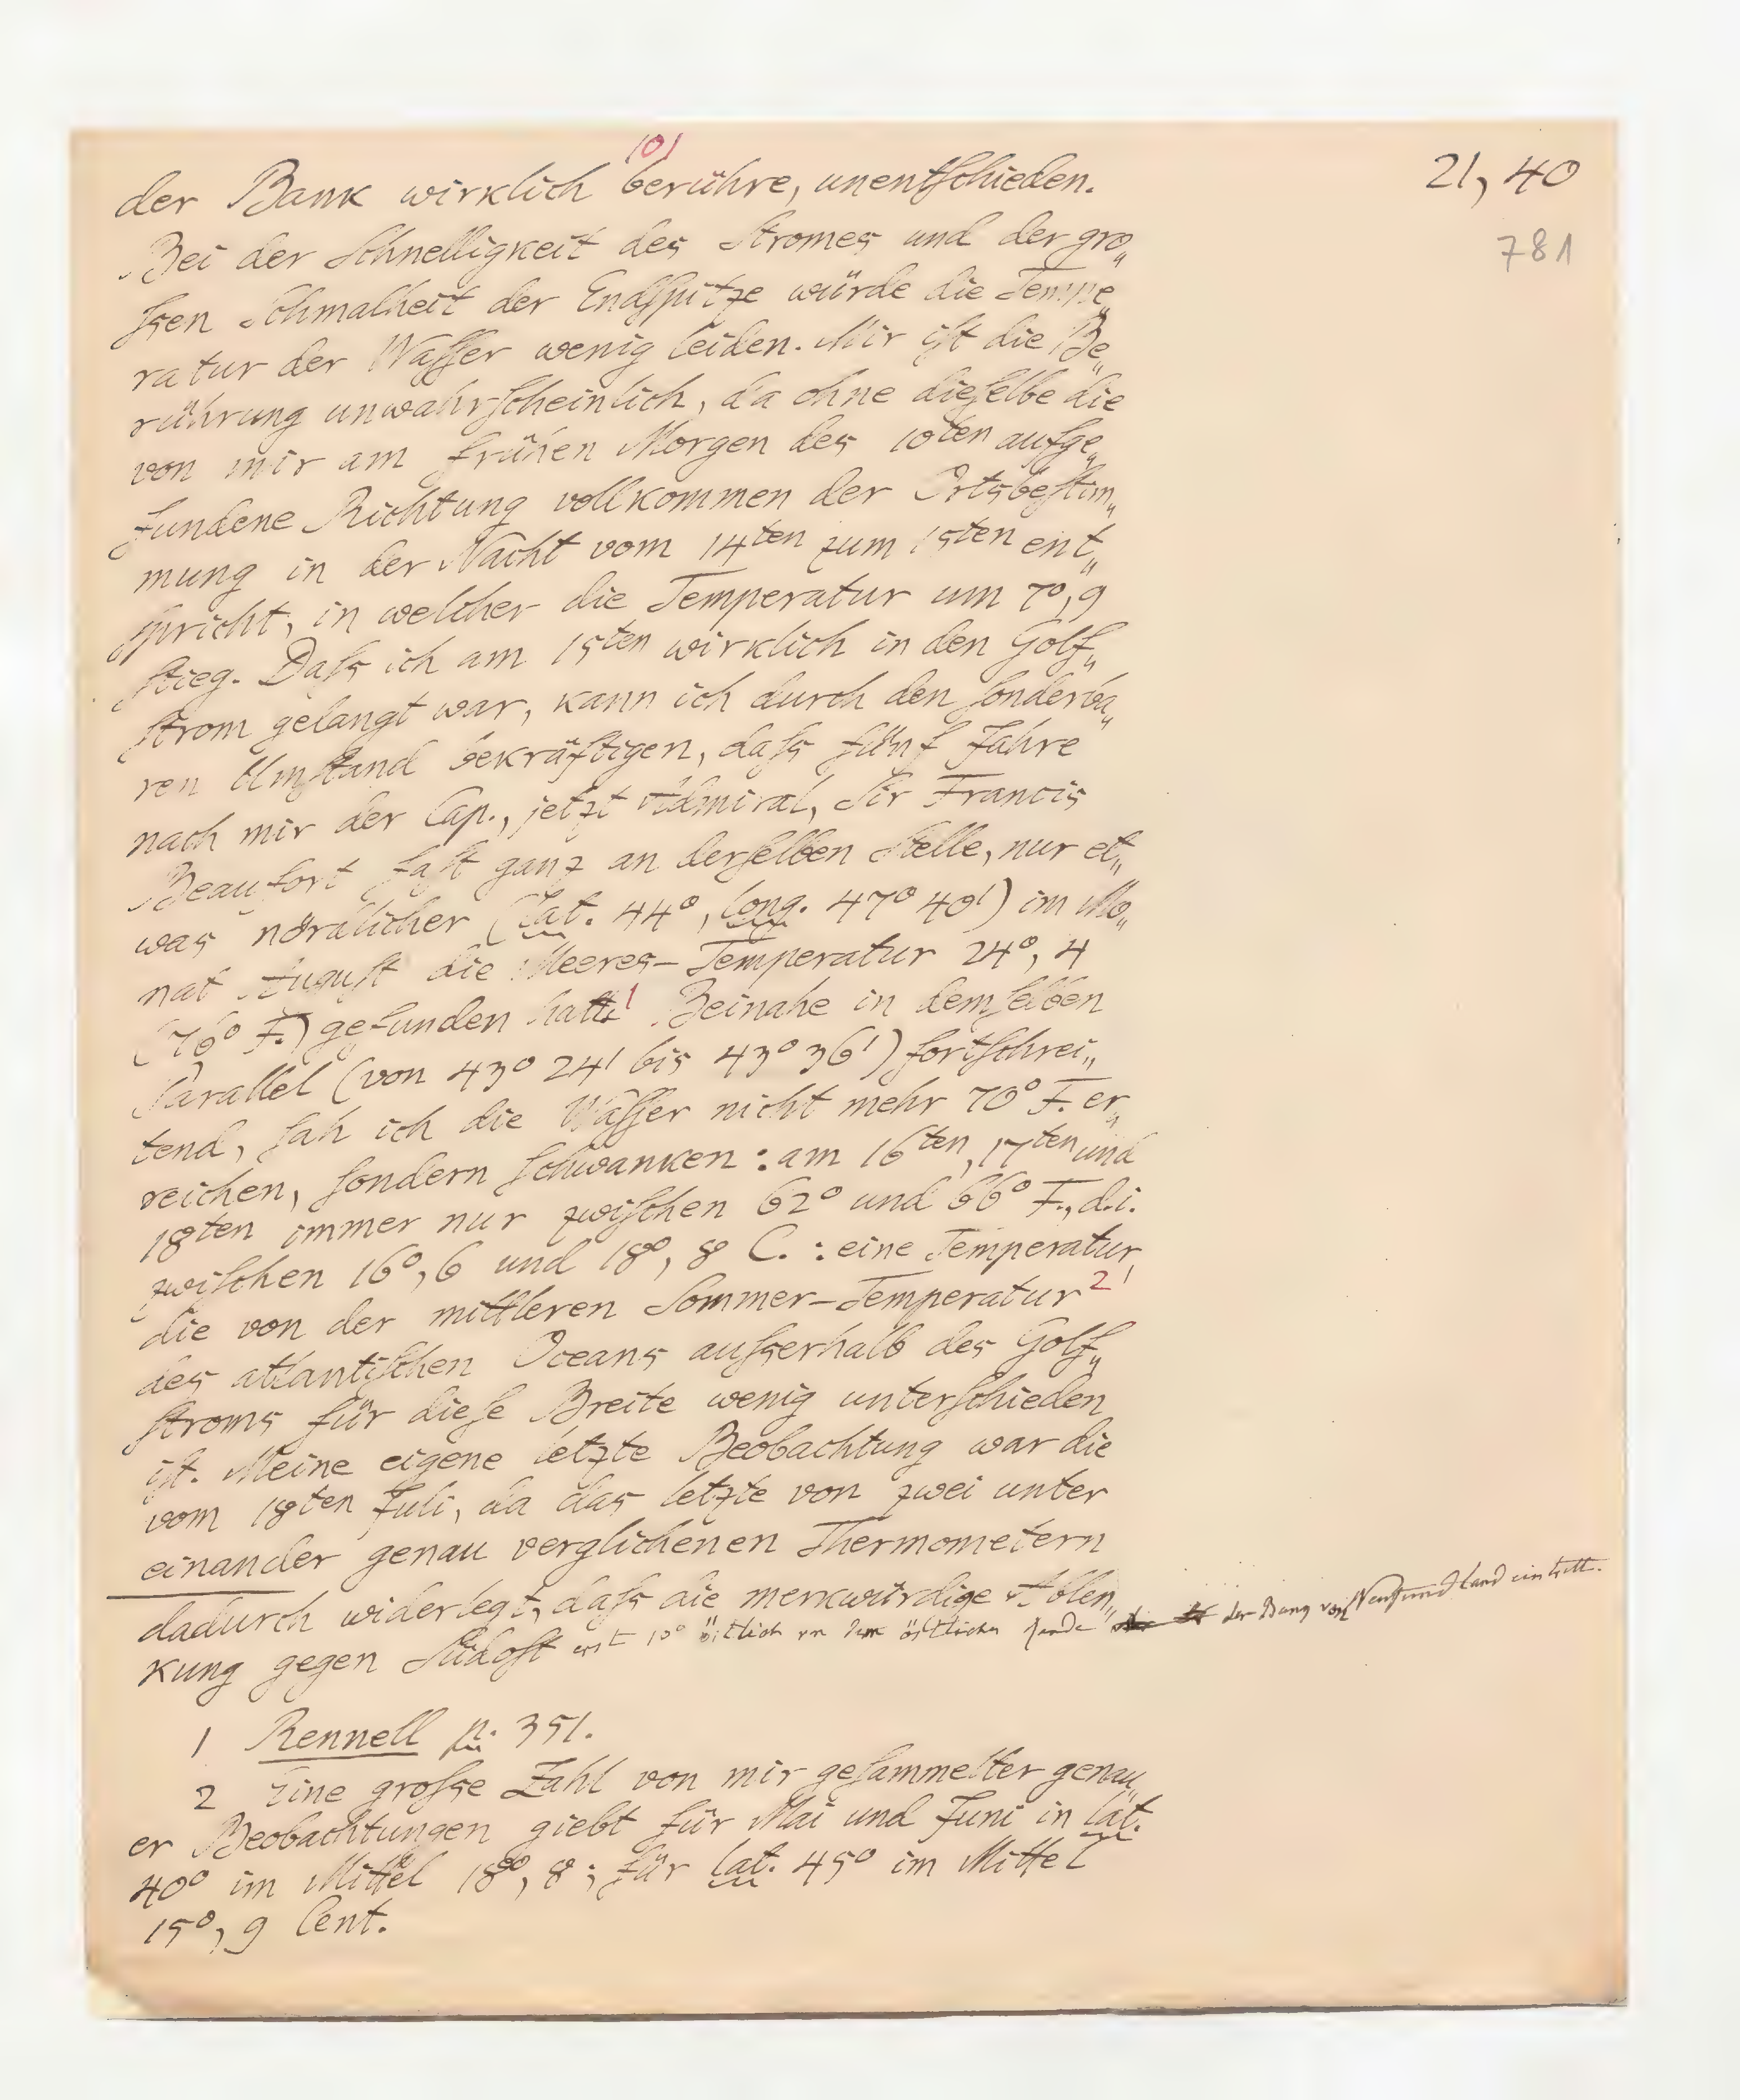 101
21, 40
781
der Bank wirklich berühre, unentschieden.
Bei der Schnelligkeit des Stromes und der gro„
ssen Schmalheit der Endspitze würde die Tempe„
ratur der Wasser wenig leiden. Mir ist die Be„
rührung unwahrscheinlich, da ohne dieselbe die
von mir am frühen Morgen des 10ten aufge„
fundene Richtung vollkommen der Ortsbestim„
mung in der Nacht vom 14ten zum 15ten ent„
spricht, in welcher die Temperatur um 7°,9
stieg. Dass ich am 15ten wirklich in den Golf„
strom gelangt war, kann ich durch den sonderba„
ren Umstand bekräftigen, dass fünf Jahre
nach mir der Cap., jetzt Admiral, Sir Francis
Beaufort fast ganz an derselben Stelle, nur et„
was nördlicher (lat. 44°, long. 47° 40') im Mo„
nat August die Meeres-Temperatur 24°, 4
(76° F.) gefunden hatte¹ Beinahe in demselben
Parallel (von 43° 24' bis 43° 36') fortschrei„
tend, sah ich die Wasser nicht mehr 70° F. er„
reichen, sondern schwanken: am 16ten, 17ten und
18ten immer nur zwischen 62° und 66° F., d.i.
zwischen 16°,6 und 18°, 8 C. : eine Temperatur,
die von der mittleren Sommer-Temperatur²
des atlantischen Oceans ausserhalb des Golf„
stroms für diese Breite wenig unterschieden
ist. Meine eigene letzte Beobachtung war die
vom 18ten Juli, da das letzte von zwei unter
einander genau verglichenen Thermometern
dadurch widerlegt, dass die merkwürdige Ablen„
kung gegen Südost erst 10° östlich von dem östlichen Ende der Bank von Neufundland eintritt.
1 Rennell p. 351.
2 Eine grosse Zahl von mir gesammelter genau„
er Beobachtungen giebt für Mai und Juni in lat.
40° im Mittel 18°, 8; für lat. 45° im Mittel
15°, 9 Cent.